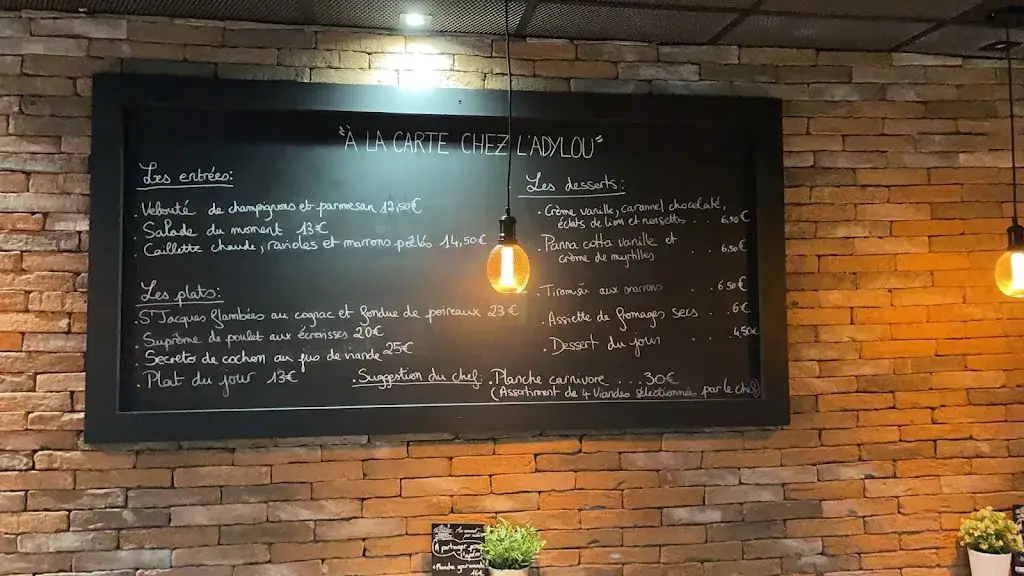 "À LA CARTE CHEZ L'ADYLOU"
Les entrées:
. Velouté de champignons et parmesan 12,50€
. Salade du moment 13€
. Caillette chaude, ravioles et marrons poêlés 14,50€
Les plats:
. St Jacques flambées au cognac et fondue de poireaux 23€
. Suprême de poulet aux écrevisses 20€
. Secretos de cochon au jus de viande 25€
. Plat du jour 13€
Les desserts:
. Crème vanille, caramel chocolaté,
éclats de lion et noisettes . . 6,50€
. Panna cotta vanille et
crème de myrtilles . . 6,50€
. Tiramisu aux marrons . . 6,50€
. Assiette de fromages secs . . 6€
. Dessert du jour . . 4,50€
. Suggestion du chef: Planche carnivore . . . 30€
(Assortiment de 4 Viandes sélectionnées par le chef)
A partager
Planche gourmande
16€